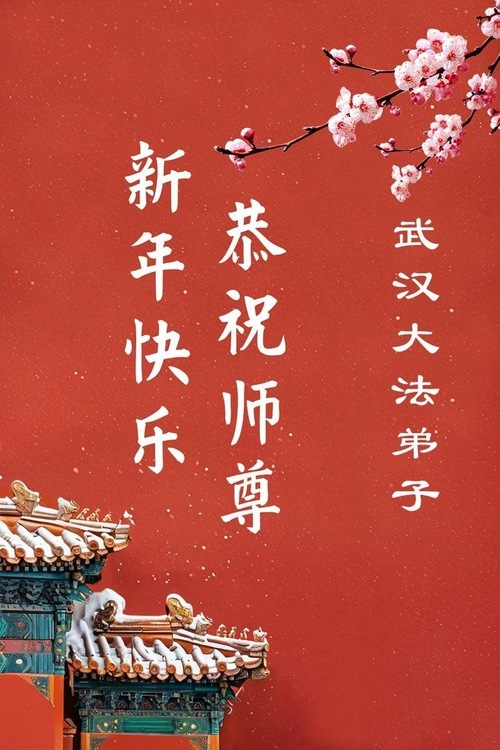 武汉大法弟子
恭祝师尊
新年快乐